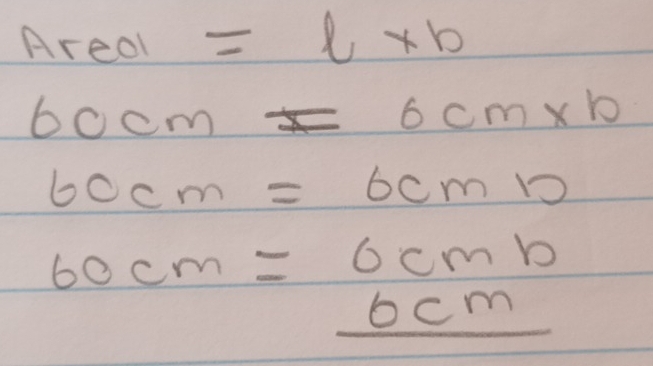 Area = l x b
60cm = 6cm x b
60cm = 6cm b
60cm = 6cm b
6cm